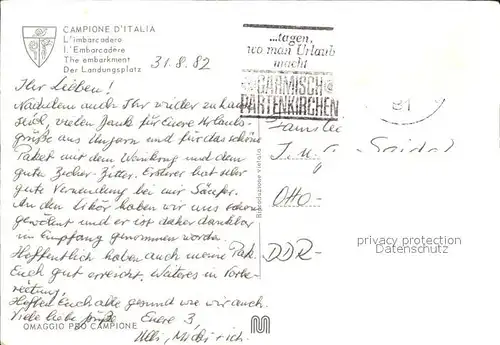 CAMPIONE D'ITALIA
L'imbarcadero
L'Embarcadère
The embarkment
Der Landungsplatz
31.8.82
...tagen,
wo man Urlaub
macht
GARMISCH
PARTENKIRCHEN
81
Ihr Lieben!
Nachdem auch Ihr wieder zuhause
seid, vielen Dank für Eure Urlaubs-
grüße aus Ungarn und für das schöne
Paket mit dem Weinkrug und dem
guten Zucker-Zitter. Ersterer hat sehr
gute Verwendung bei mir Säufer.
An den Likör haben wir uns schon
gewöhnt und er ist daher dankbar
in Empfang genommen worden.
Hoffentlich haben auch meine Pak.
Euch gut erreicht. Weiteres in Vorbe-
reitung.
Hoffen Euch alle gesund wie wir auch.
Viele liebe Grüße Eure 3,
Michi + ich.
Familie
J. u. G.
Otto-
DDR-
Riproduzione vietata
privacy protection
Datenschutz
OMAGGIO PRO CAMPIONE